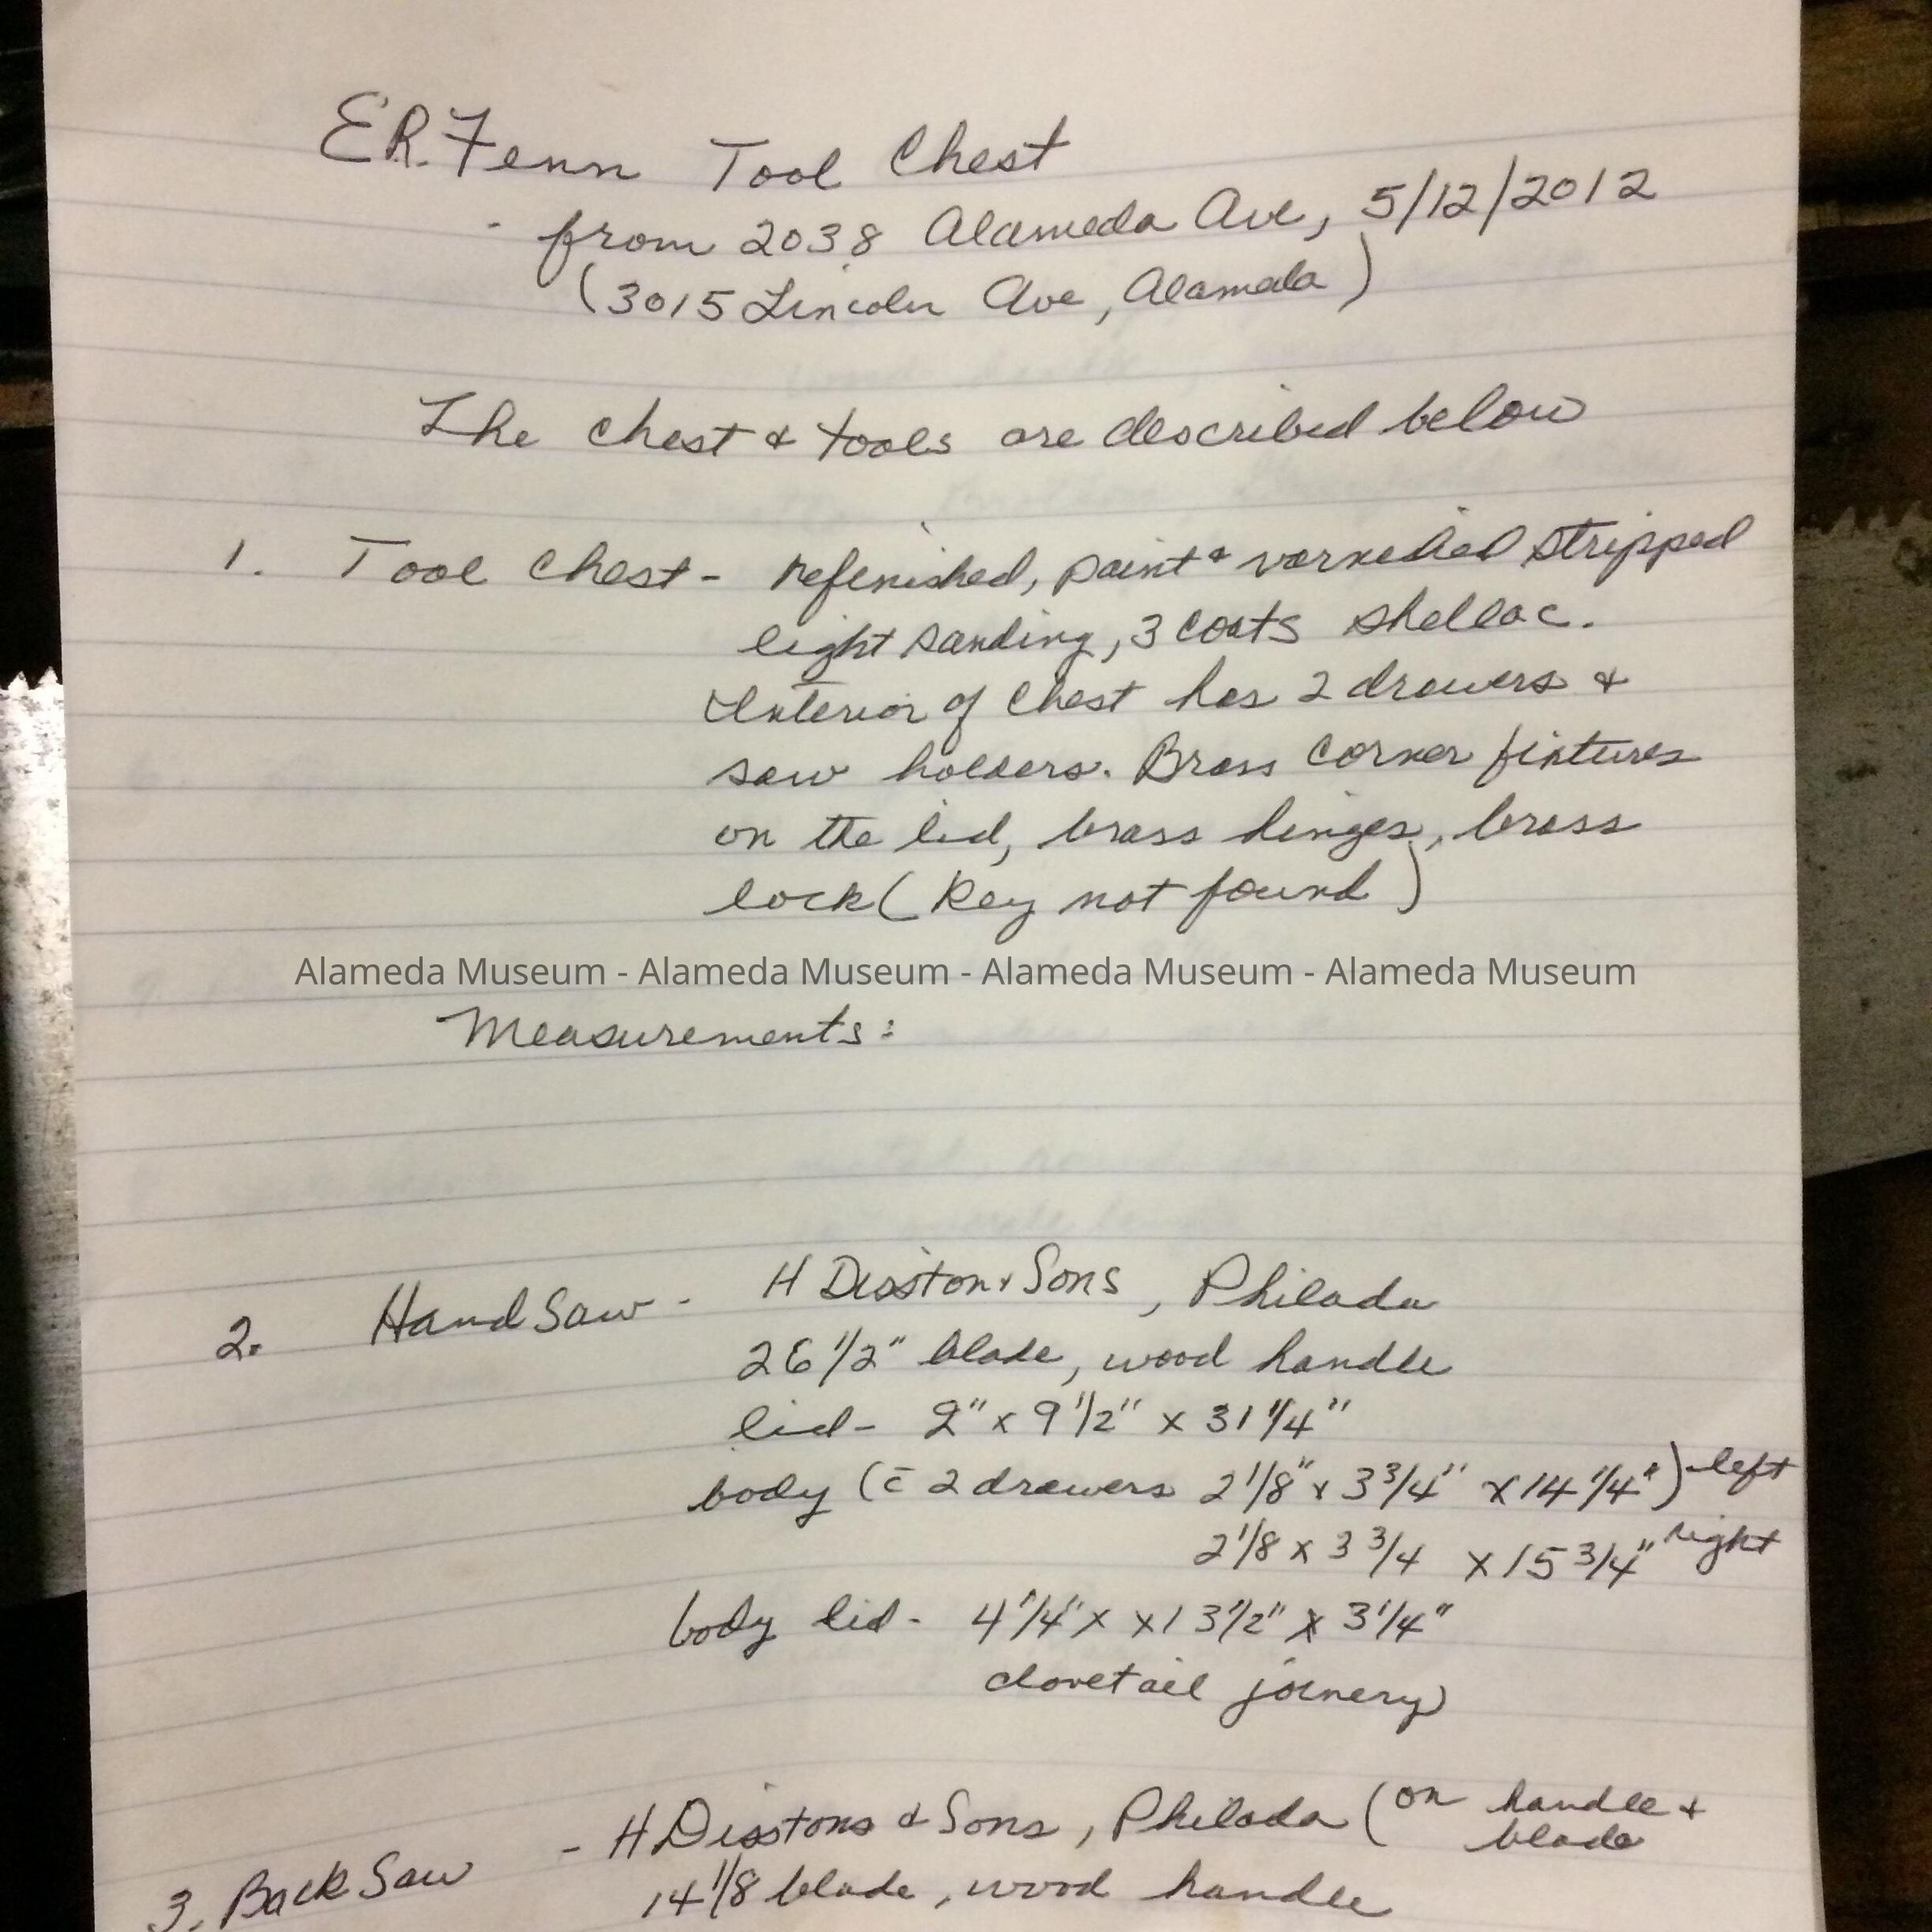 E.R. Fenn Tool Chest
- from 2038 Alameda Ave, 5/12/2012
(3015 Lincoln Ave, Alameda)
The chest & tools are described below
1. Tool Chest - refinished, paint & varnished stripped
light sanding, 3 coats shellac.
Interior of chest has 2 drawers &
saw holders. Brass corner fixtures
on the lid, brass hinges, brass
lock (key not found)
Alameda Museum - Alameda Museum - Alameda Museum - Alameda Museum
Measurements:
2. Hand Saw - H Disston & Sons, Philada
26 1/2" blade, wood handle
lid - 2" x 9 1/2" x 31 1/4"
body (c̄ 2 drawers 2 1/8" x 3 3/4" x 14 1/4") left
2 1/8 x 3 3/4 x 15 3/4" right
body lid - 4 1/4" x x 13 1/2" x 31/4"
dovetail joinery)
3. Back Saw - H Disstons & Sons, Philada (on handle &
blade
14 1/8 blade, wood handle